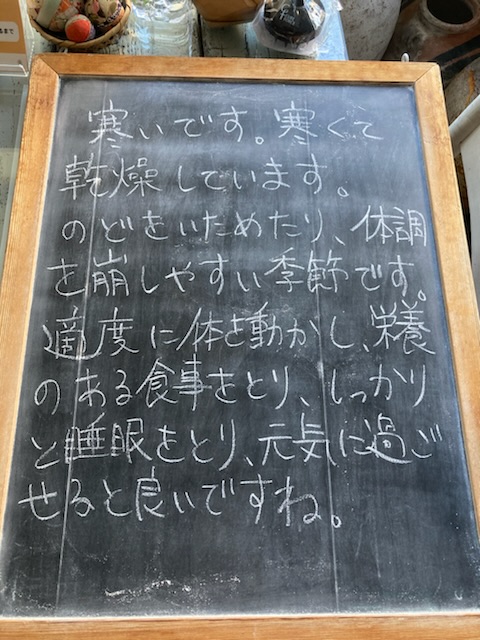 寒いです。寒くて
乾燥しています。
のどをいためたり、体調
を崩しやすい季節です。
適度に体を動かし、栄養
のある食事をとり、しっかり
と睡眠をとり、元気に過ご
せると良いですね。